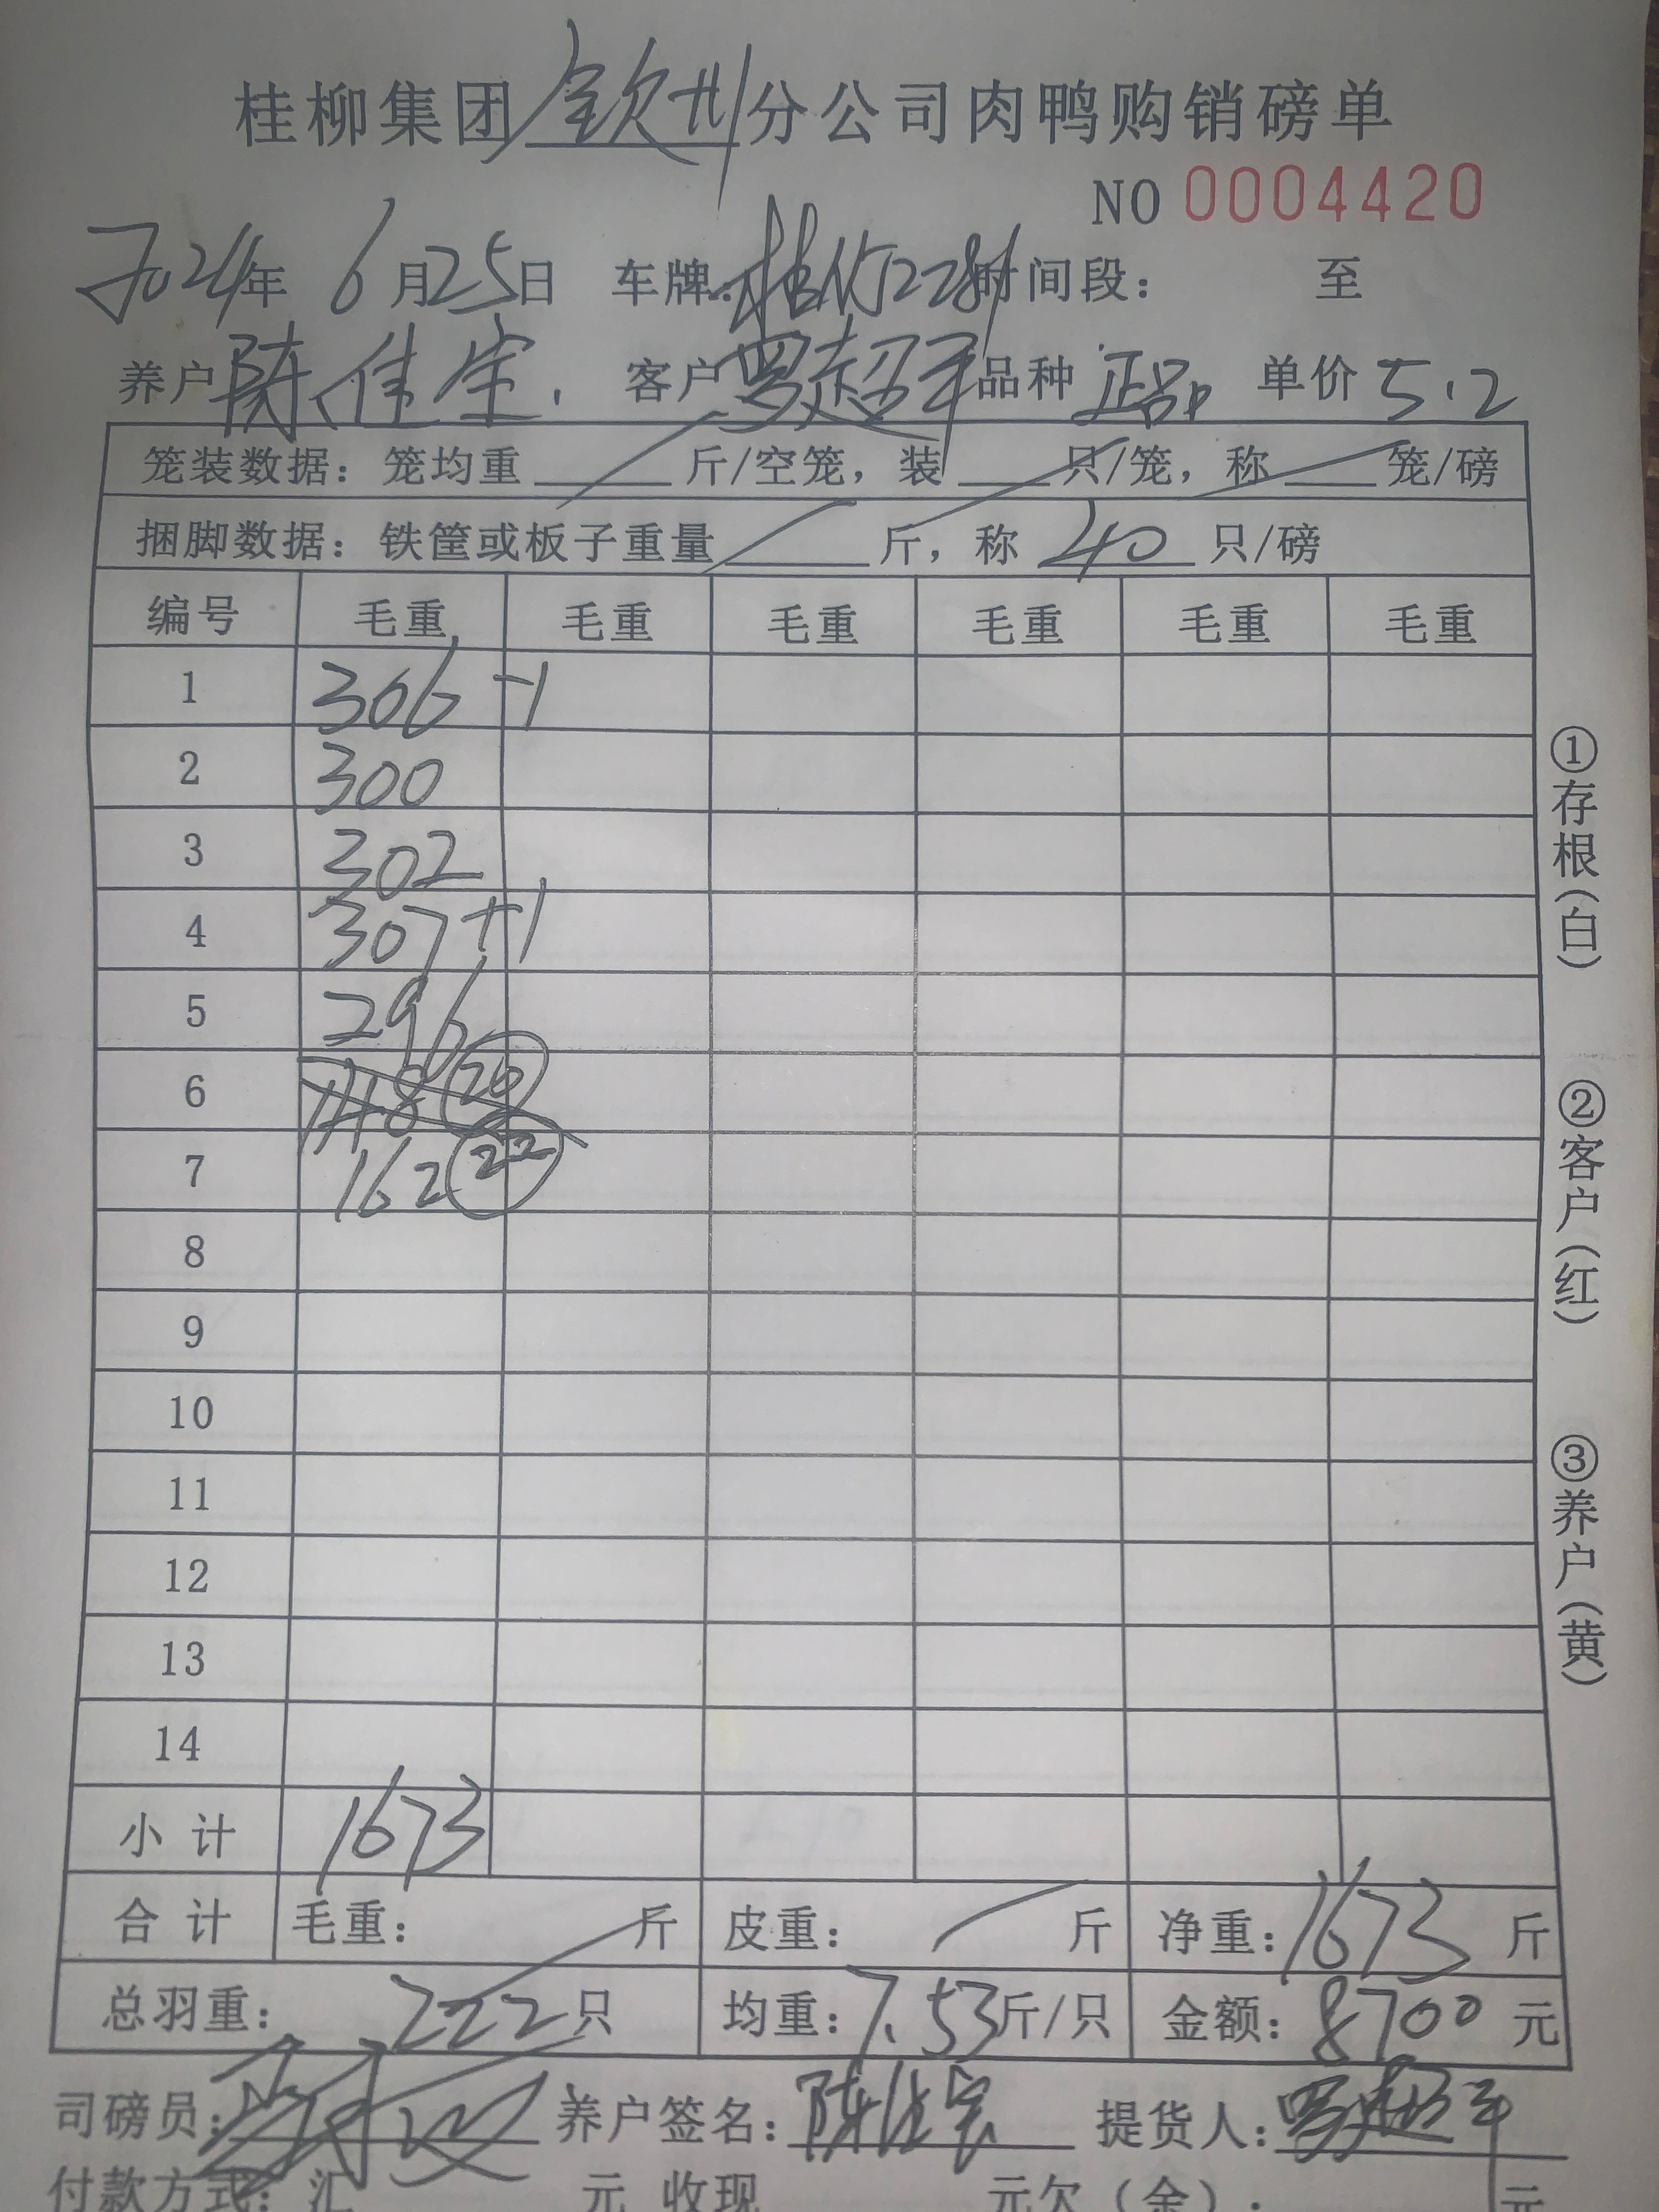 桂柳集团钦州分公司肉鸭购销磅单
NO 0004420
2024年 6月25日 车牌: 时间段: 至
养户 陈佳宝. 客户 罗超平 品种 正品 单价 5.2
笼装数据: 笼均重 斤/空笼, 装 只/笼, 称 笼/磅
捆脚数据: 铁筐或板子重量 斤, 称 40 只/磅
编号 毛重 毛重 毛重 毛重 毛重 毛重
1 306 -1
2 300
3 302
4 307 +1
5 296
6 148 20
7 162 22
8
9
10
11
12
13
14
小计 1673
合计 毛重: 斤 皮重: 斤 净重: 1673 斤
总羽重: 222只 均重: 7.53斤/只 金额: 8700 元
司磅员: 养户签名: 陈佳宝 提货人: 罗超平
付款方式: 汇 元 收现 元欠(金): 元
①存根(白) ②客户(红) ③养户(黄)